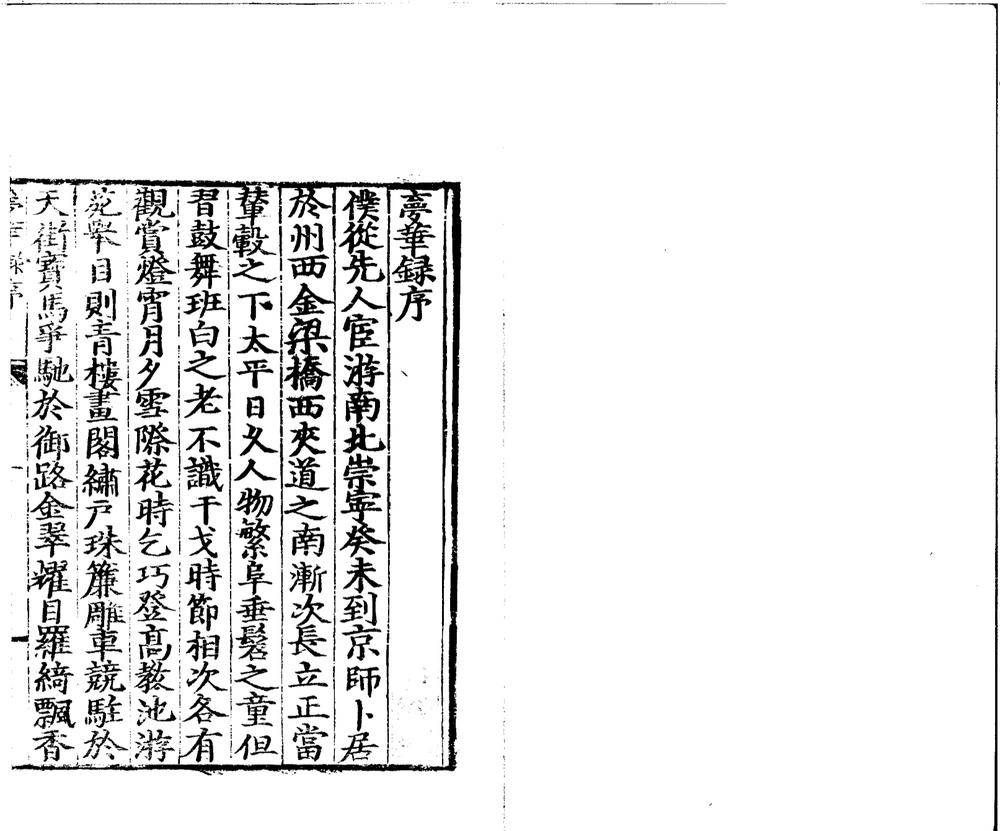 夢華録序
僕從先人宦游南北崇寧癸未到京師卜居
於州西金梁橋西夾道之南漸次長立正當
輦轂之下太平日久人物繁阜垂髫之童但
習鼓舞班白之老不識干戈時節相次各有
觀賞燈宵月夕雪際花時乞巧登高教池游
苑舉目則青樓畫閣繡戶珠簾雕車競駐於
天街寶馬爭馳於御路金翠耀目羅綺飄香